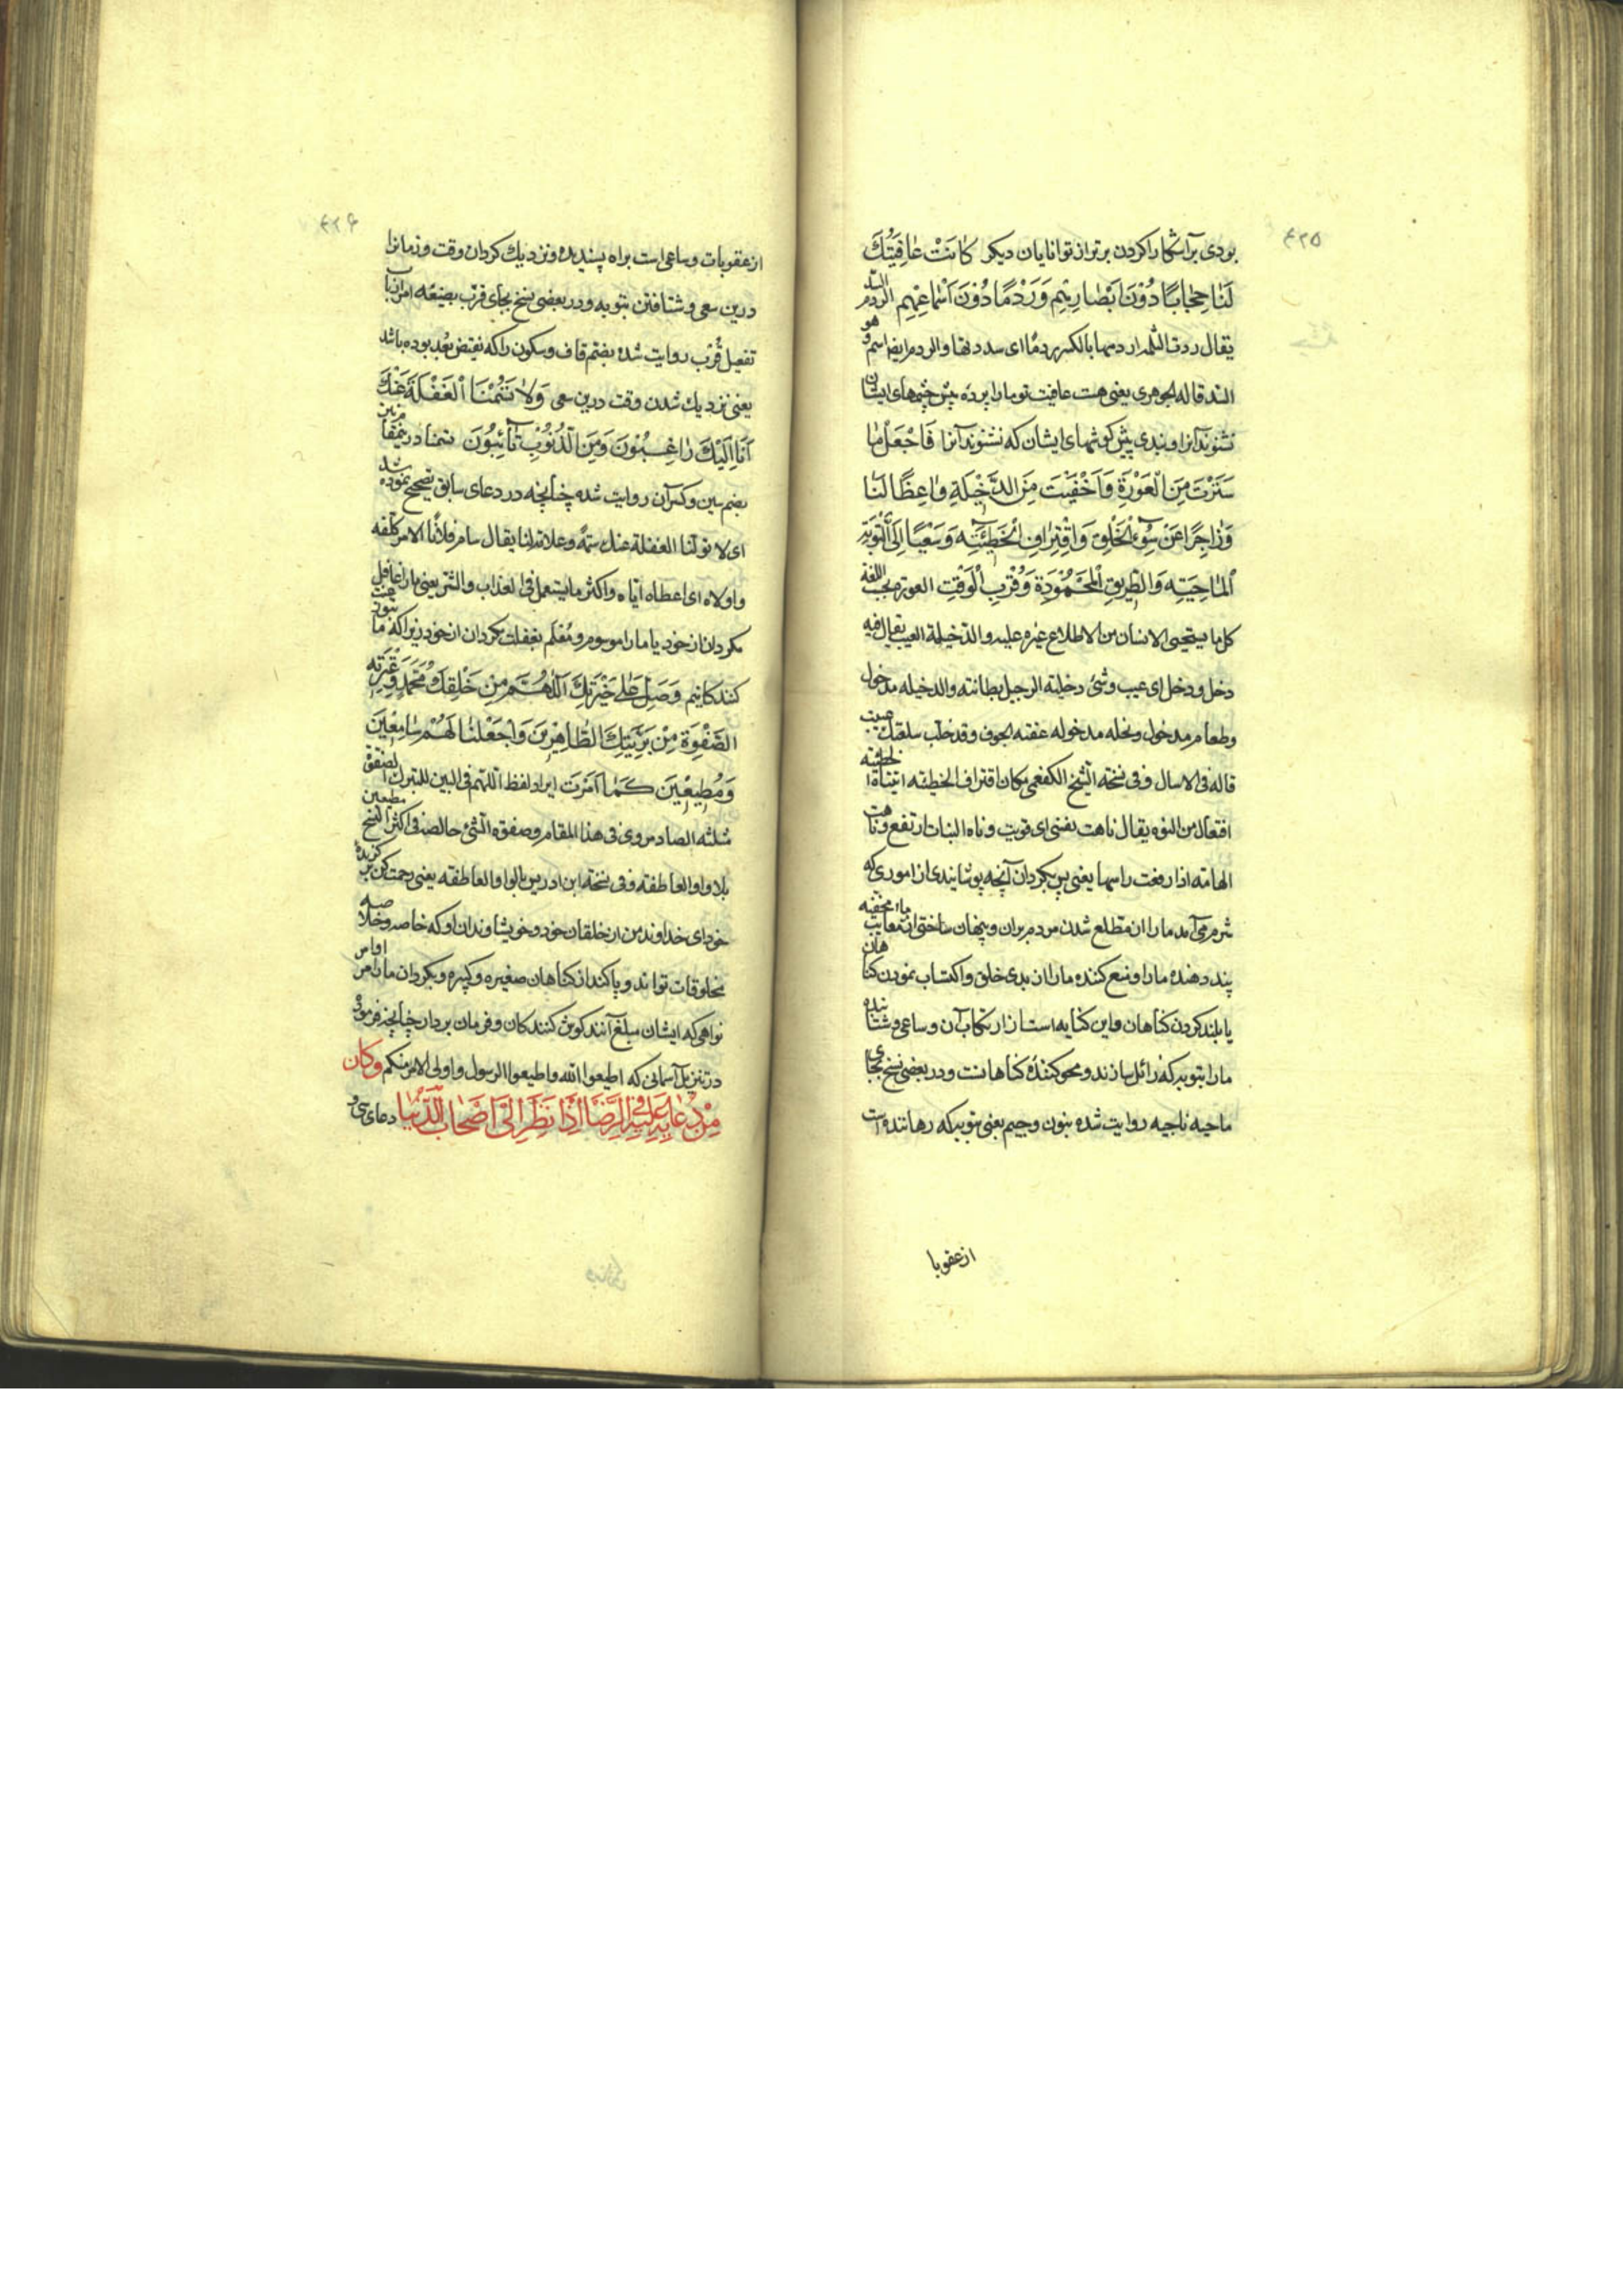 ۴۲۵
بودی بر آشکارا کردن برتر از توانایان دیکر کَانَتْ عَافِیَتُكَ
لَنَا حِجَابًا دُوْنَ اَبْصَارِهِمْ وَرَدْمًا دُوْنَ اَسْمَاعِهِمْ الردم السد
یقال ردمت الثلمة اردمها بالکسر ردمًا ای سددتها والردم ایضا اسم وهو
السد قاله الجوهری یعنی هست عافیت تو ما را پرده پیش چشمهای ایشان
نشنوند آنرا و بندی پیش کوشهای ایشان که نشنوند آنرا فَاجْعَلْ مَا
سَتَرْتَ مِنَ الْعَوْرَةِ وَاَخْفَیْتَ مِنَ الدَّخِیْلَةِ وَاعِظًا لَنَا
وَزَاجِرًا عَنْ سُوْءِ الْخَلْقِ وَاقْتِرَافِ الْخَطِیْئَةِ وَسَعْیًا اِلَی التَّوْبَةِ
الْمَاحِیَةِ وَالطَّرِیْقِ الْمَحْمُوْدَةِ وَقُرْبِ الْوَقْتِ العورة بحسب اللغة
کل ما یستحیی الانسان من الاطلاع غیره علیه والدخیلة العیب یقال فیه
دخل و دخل ای عیب وشیء دخیلة الرجل بطانته والدخیله مدخول
وطعام مدخول ونخله مدخوله عفنه الجوف وقد خلب سلعتك عیبت
قاله فی الاساس وفی نسخه الشیخ الکفعمی مکان اقتراف الخطیئه انتیاه الخطیئه
افتعال من النوه یقال ناهت نفسی ای قویت وناه النبات ارتفع وناهت
الهامة اذا رفعت راسها یعنی پس بکردان آنچه پوشانیدی از اموری که
شرم می آمد ما را از مطلع شدن مردم بران و پنهان ساختی از معایب مااخفیه
پند دهنده ما را و منع کننده ما را از بدی خلق و اکتساب نمودن کناهان
یا بلند کردن کناهان و این کنایه است از ارتکاب آن و ساعی و شتابنده
ما را بتوبه که زائل سازنده و محو کنندهٔ کناهانست و در بعضی نسخ بجای
ماحیه ناجیه روایت شده بنون و جیم یعنی توبه که رهاننده است
از عقوبا
۴۲۶
از عقوبات و ساعی است براه پسندیده و نزدیك کردان وقت و زمانرا
درین سعی و شتافتن بتوبه و در بعضی نسخ بجای قرب بصیغه امر از باب
تفعیل قُرْب روایت شده بضم قاف و سکون را که نقیض بعد بوده باشد
یعنی نزدیك شدن وقت درین سعی وَلَا تَسُمْنَا الْغَفْلَةَ عَنْكَ
اِنَّا اِلَیْكَ رَاغِبُوْنَ وَمِنَ الذُّنُوْبِ تَائِبُوْنَ تسمنا درین مقام
بضم سین و کسر آن روایت شده چنانچه در دعای سابق تصحیح نموده شد
ای لا تولنا الغفلة عنك سمة وعلامة لنا یقال سام فلانًا الامر کلفه
واولاه ای اعطاه ایاه واکثر ما یستعمل فی العذاب والشر یعنی ما را غافل
مکردان از خود یا ما را موسوم و مُعْلَم بغفلت مکردان از خود زیرا که ما
کنندکانیم وَصَلِّ عَلٰی خِیَرَتِكَ اللّٰهُمَّ مِنْ خَلْقِكَ مُحَمَّدٍ وَعِتْرَتِهِ
الصَّفْوَةِ مِنْ بَرِیَّتِكَ الطَّاهِرِیْنَ وَاجْعَلْنَا لَهُمْ سَامِعِیْنَ
وَمُطِیْعِیْنَ کَمَا اَمَرْتَ ایراد لفظ اللهم فی البین للتبرك الصفوة
مثلثه الصاد مروی فی هذا المقام وصفوه الشیء خالصه فی اکثر النسخ مطیعین
بلا واو العاطفه وفی نسخة ابن ادریس بالواو العاطفه یعنی رحمت کن بر کزیدهٔ
خود ای خداوند من از خلقان خود و خویشاوندان او که خاصه و خلاصه
مخلوقات تواند و پاکند از کناهان صغیره و کبیره و بکردان ما را مر اوامر
نواهی که ایشان مبلغ آنند کوش کنندکان و فرمان بردار چنانچه فرمودی
در تنزیل آسمانی که اطیعوا الله واطیعوا الرسول واولی الامر منکم وکان
مِنْ دُعَائِهِ عَلَیْهِ فِی الرِّضَا اِذَا نَظَرَ اِلٰی اَصْحَابِ الدُّنْیَا دعای سی و